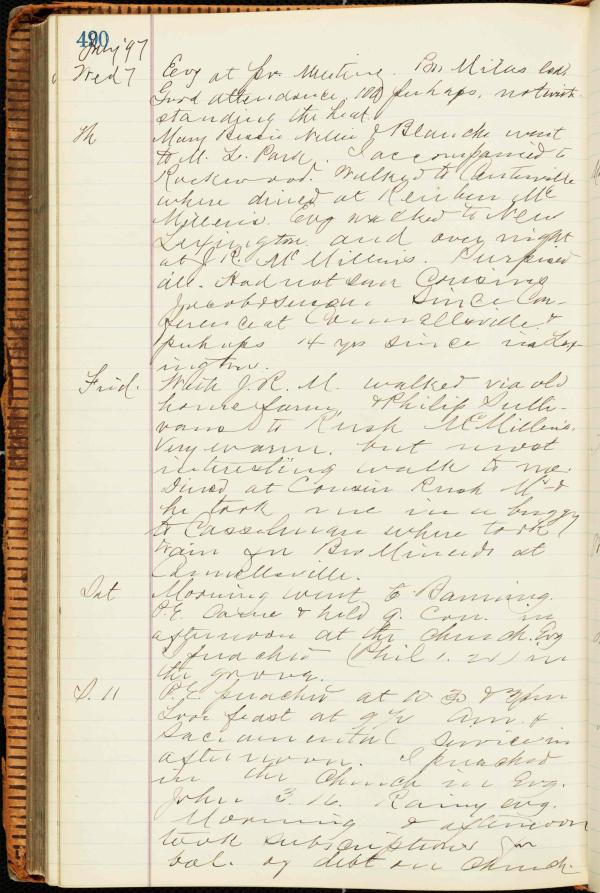 490
July '97
Wed 7 Evg at pr. Meeting. Bro Miles led.
Good attendance, 100 perhaps, notwith-
standing the heat.
Th Mary Bessie Nellie & Blanche went
to M. L. Park. I accompanied to
Rockwood. Walked to Centerville
where dined at Reuben Mc
Millens. Evg walked to New
Lexington and over night
at J. R. McMillens. Surprised
all. Had not seen Cousins
Jacob & Susan since Con-
ference at Connellsville, &
perhaps 14 yrs since in Lex-
ington.
Frid. With J. R. M. walked via old
home farm, & Philip Sulli-
vans to Rush McMillens.
Very warm, but most
interesting walk to me.
Dined at Cousin Rush Mc &
he took me in a buggy
to Casselman where took
train for Bro Minerds at
Connellsville.
Sat Morning went to Banning.
P.E. came & held q. Con. in
afternoon at the church. Evg
I preached (Phil 1. 21) in
the grove.
S. 11 P.E. preached at 10.30 &
Love feast at 9½ a.m. &
Sacramental service in
afternoon. I preached
in the Church in Evg.
John 3. 16. Rainy evg.
Morning & afternoon
took subscriptions for
bal. of debt on church.